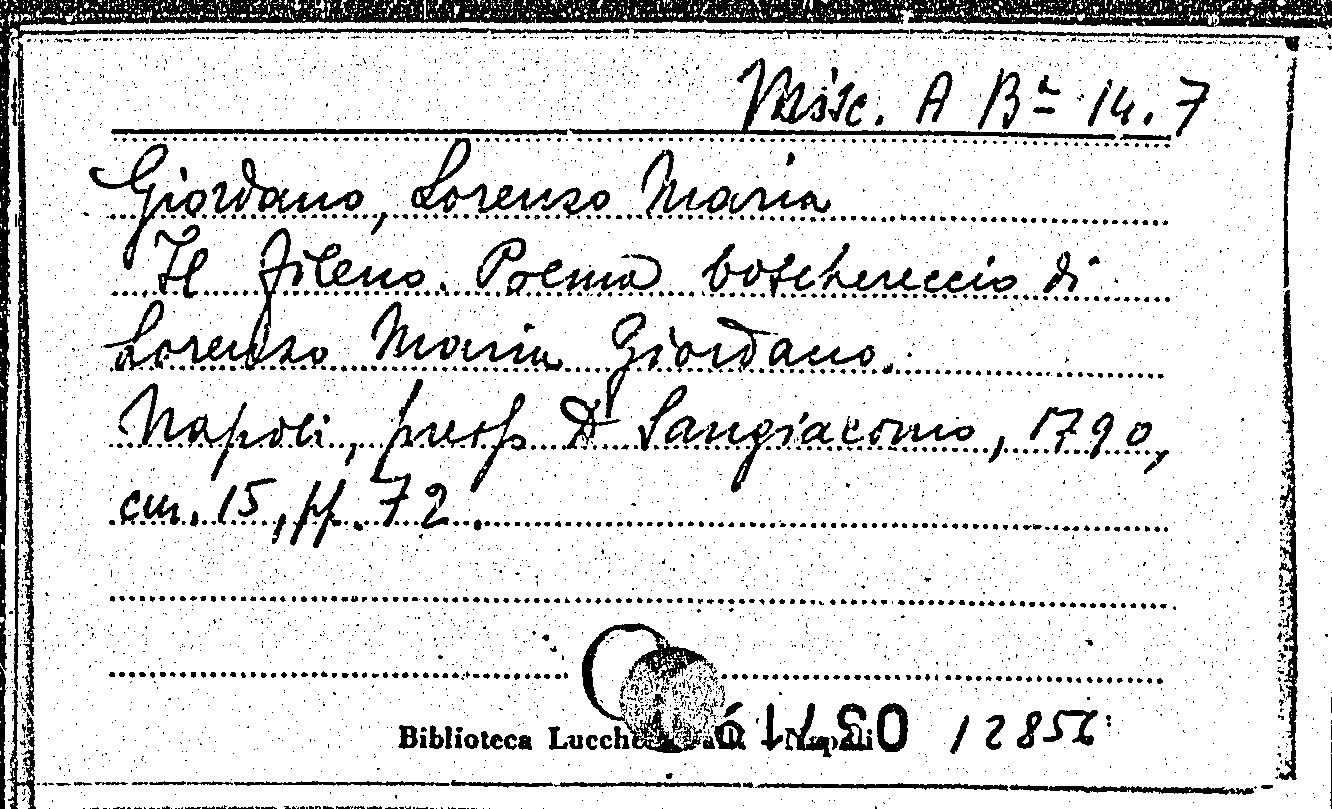 Misc. A Bª 14.7
Giordano, Lorenzo Maria
Il fileno. Poema boschereccio di
Lorenzo Maria Giordano.
Napoli, press. Dº Sangiacomo, 1790,
cm. 15, pp. 72.
Biblioteca Napoli 12856